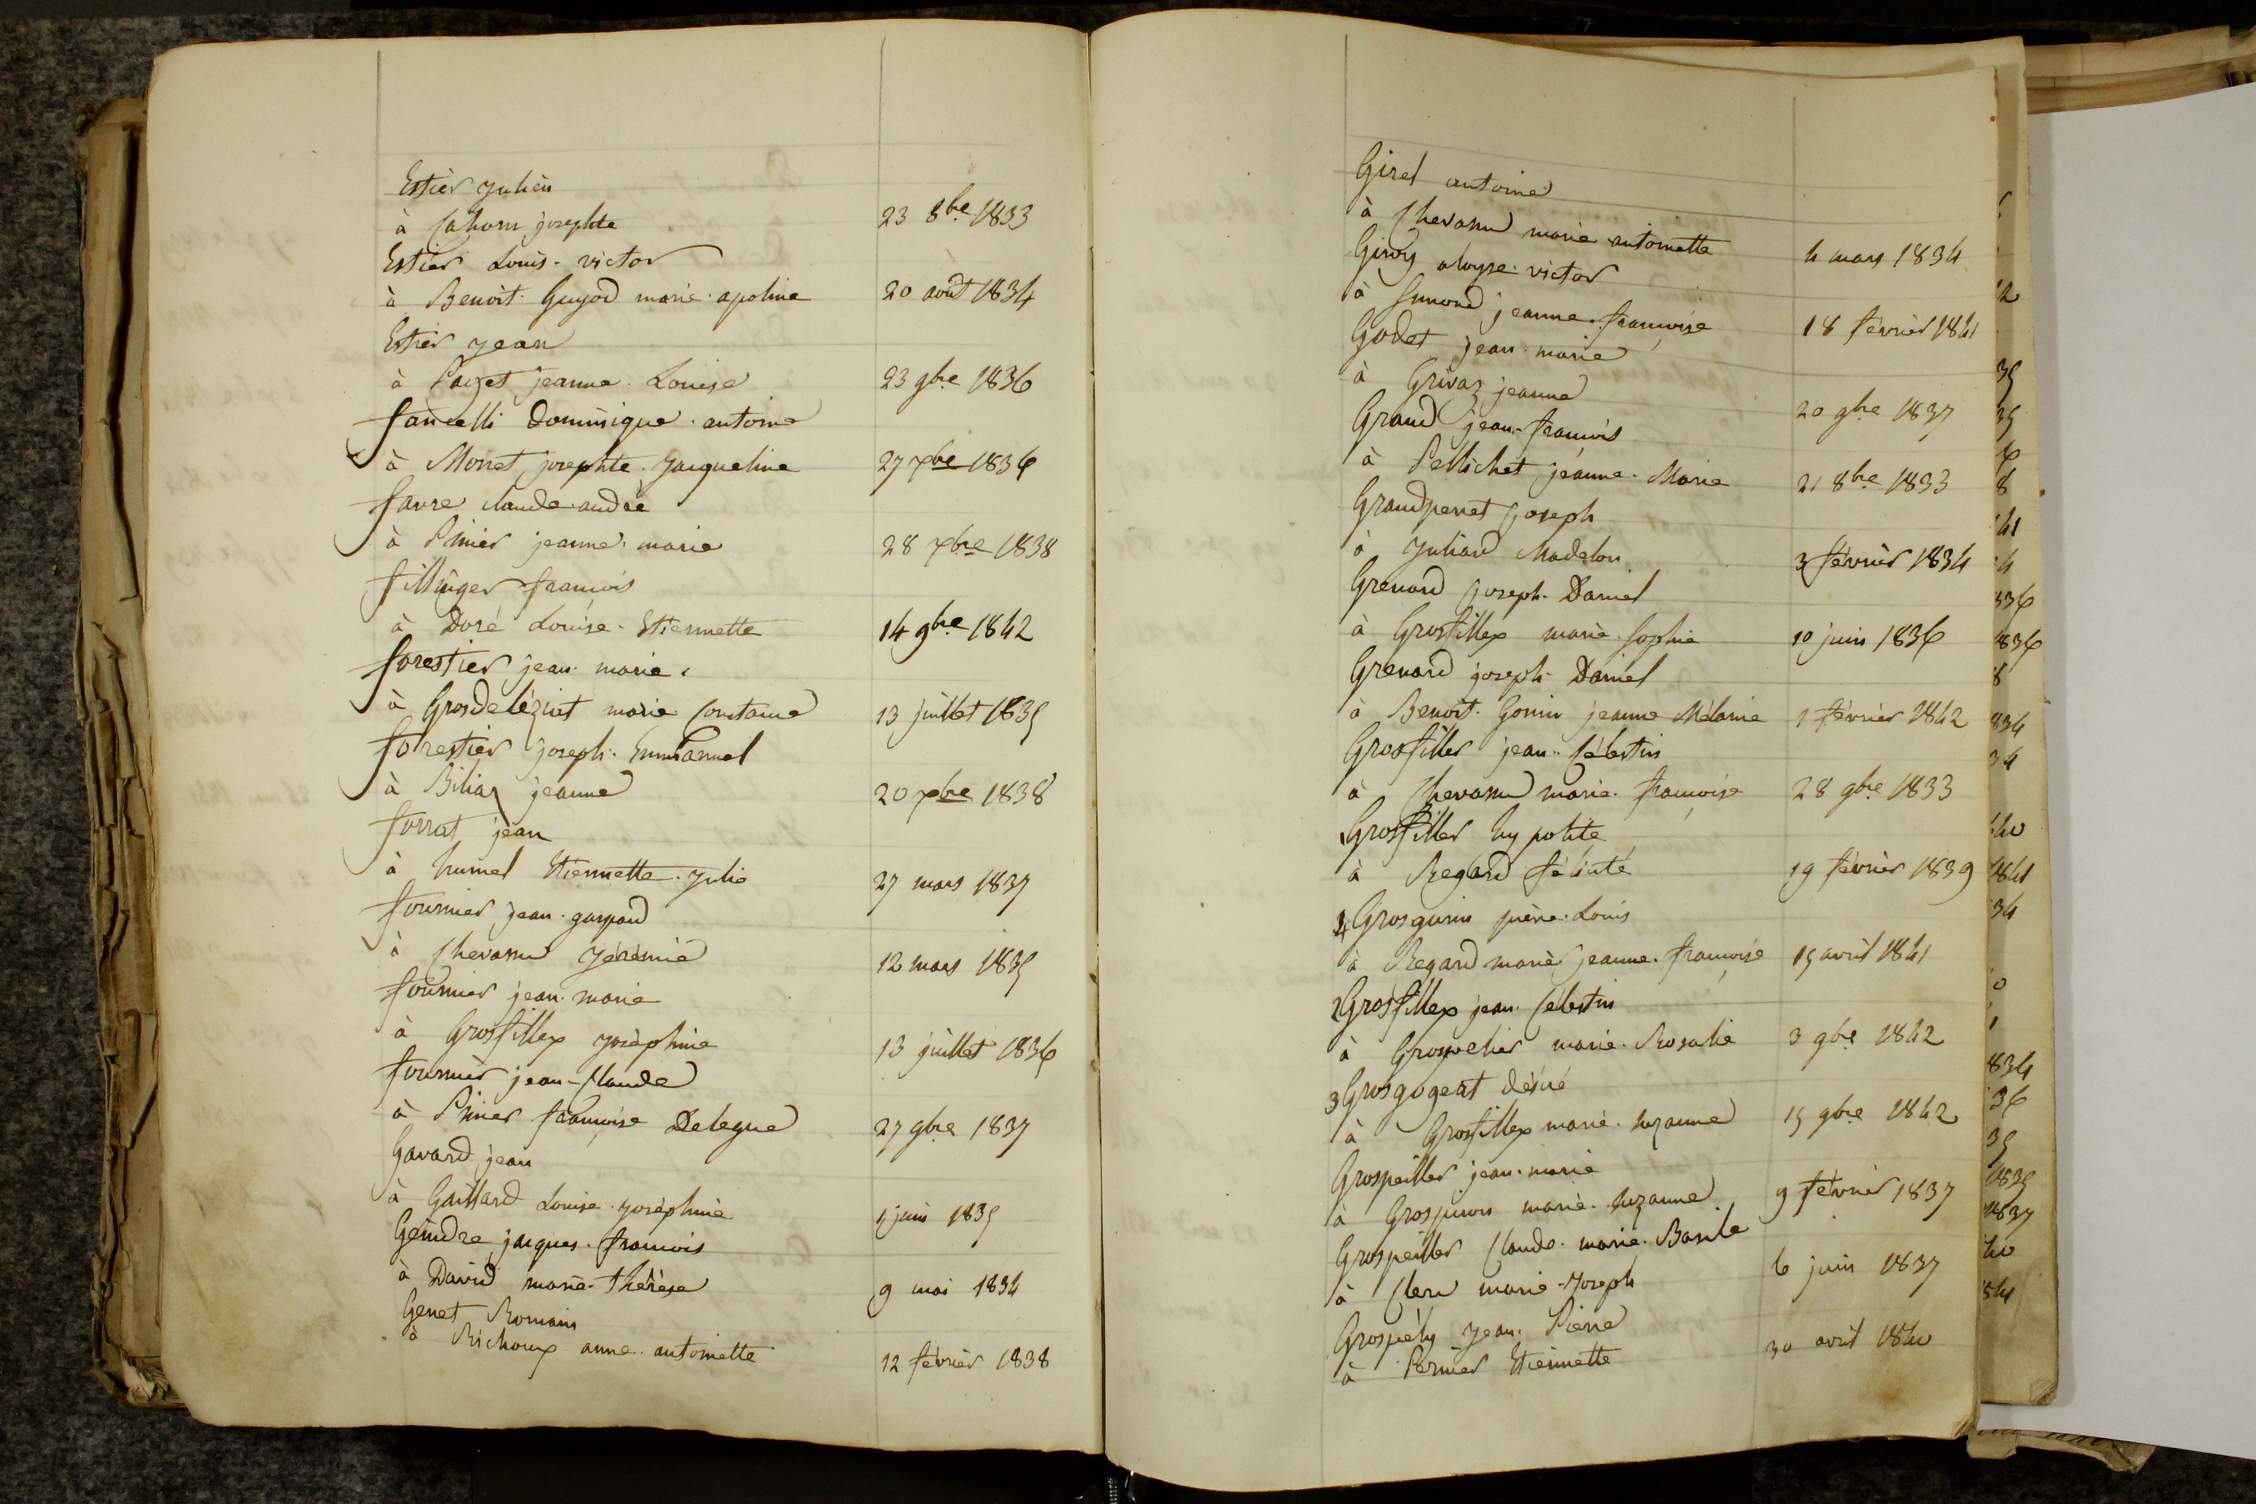 Estier Julien
à Cahorn josephte 23 8bre 1833
Estier Louis-victor
à Benoit-Guyod marie-apoline 20 août 1834
Estier jean
à Paget jeanne-Louise 23 9bre 1836
fancelli Dominique-antoine
à Monet josephte-Jacqueline 27 Xbre 1836
favre Claude-andré
à Prinier jeanne-marie 28 Xbre 1838
fillinger françois
à Doré Louise-Etiennette 14 9bre 1842
forestier jean-marie
à Grosdeléziat marie Constance 13 juillet 1835
forestier joseph-Emmanuel
à Biliaz jeanne 20 Xbre 1838
forrat jean
à humel Etiennette-Julie 27 mars 1837
fournier jean-gaspard
à Chevassu Jérémie 12 mars 1835
fournier jean-marie
à Grosfillex joséphine 13 juillet 1836
fournier jean-Claude
à Prinier françoise 27 9bre 1837
Gavard jean
à Gaillard Louise-joséphine juin 1835
Geindre jacques-francois
à David marie-thérèse 9 mai 1834
Genet Romain
à Richoux anne-antoinette 12 février 1838
Girel antoine
à Chevassu marie antoinette 4 mars 1834
Girody aloyse-victor
à jeanne-françoise 18 février 1841
Godet jean-marie
à Grivaz jeanne 20 9bre 1837
Grand jean-françois
à Pellichet jeanne-Marie 21 8bre 1833
Grandperret joseph
à Juliard Madelon 3 février 1834
Grenard joseph-Daniel
à Grosfillex marie-Sophie 10 juin 1836
Grenard joseph-Daniel
à Benoit-Gonin jeanne Mélanie 1 février 1842
Grosfiller jean-Célestin
à Chevassu marie-françoise 28 9bre 1833
1 Grosfiller hypolite
à Regard félicité 19 février 1839
4 Grosgurin pierre-Louis
à Regard marie jeanne-françoise 15 avril 1841
2 Grosfillex jean-Célestin
à Grospelier marie-Rosalie 3 9bre 1842
3 Grosgogeat désiré
à Grosfillex marie-suzanne 15 9bre 1842
Grospeiller jean-marie
à Grospiron marie-suzanne 9 février 1837
Grospeiller Claude-marie-Basile
à Clerc marie-joseph 6 juin 1837
Grospély jean-Pierre
à Pernier Etiennette 30 avril 1840